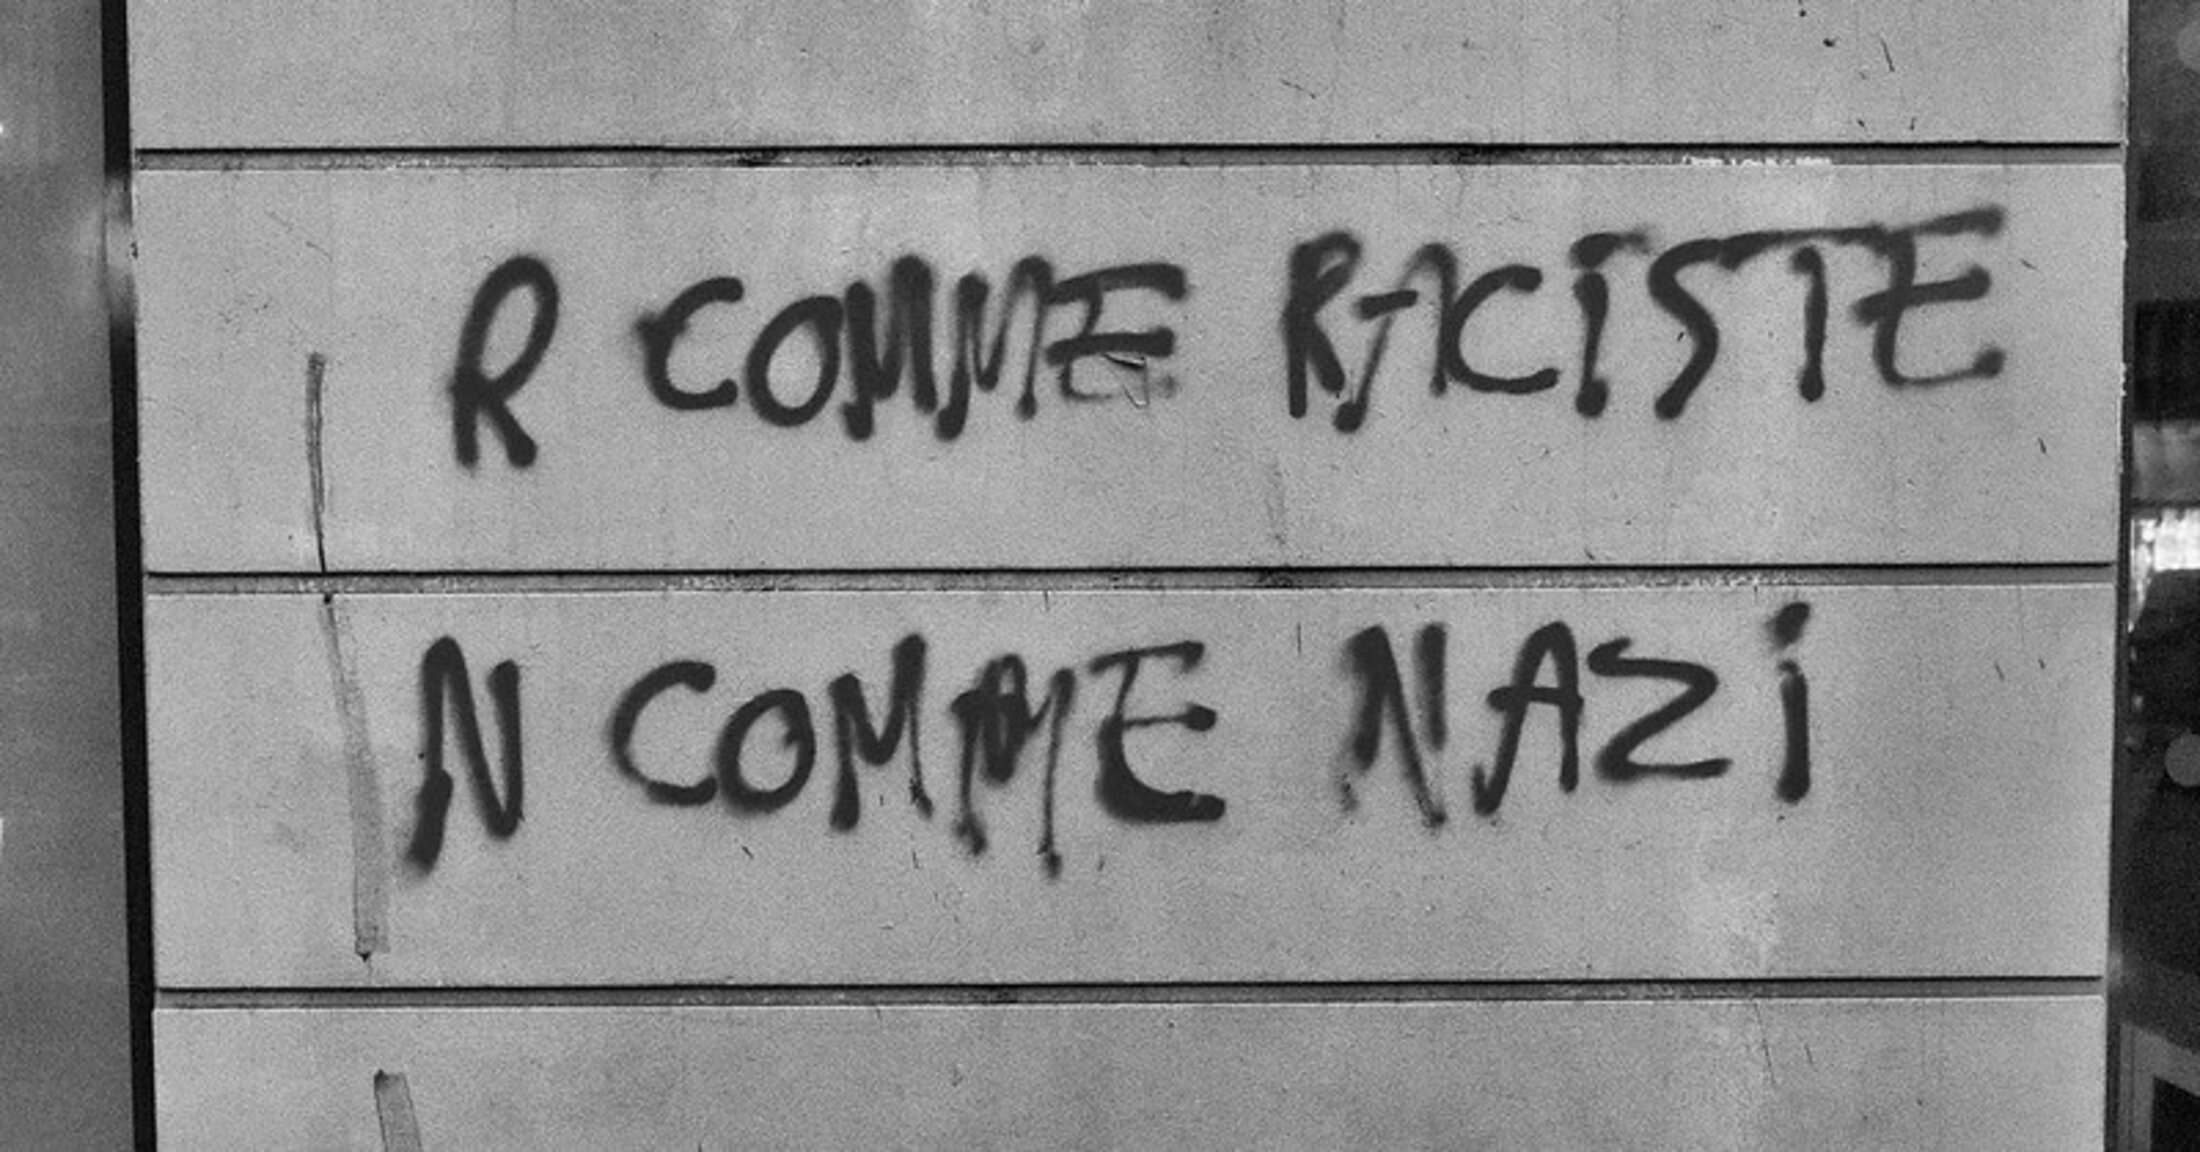 R COMME RACiSTE
N COMME NAZi